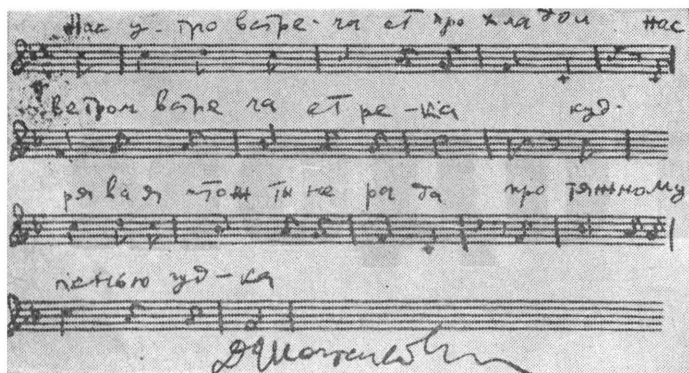 Нас у-тро встре-ча ет про хла дой нас
ветром встре ча ет ре-ка куд-
ря ва я чтож ты не ра да про тяжному
пенью гуд-ка
ДШостакович